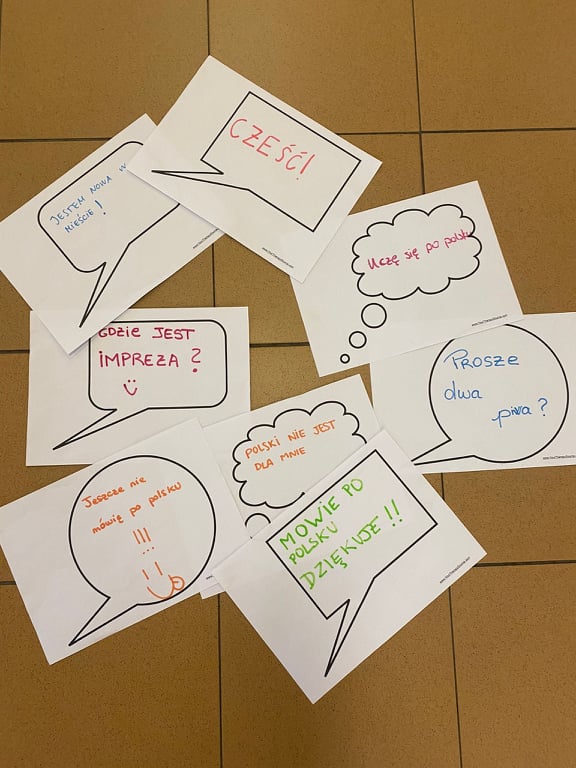 CZEŚĆ!
JESTEM NOWA W
MIEŚCIE!
Uczę się po polsku
GDZIE JEST
IMPREZA?
Prosze
dwa
piwa?
POLSKI NIE JEST
DLA MNIE
Jeszcze nie
mówię po polsku
!!!
MOWIE PO
POLSKU
DZIĘKUJE!!